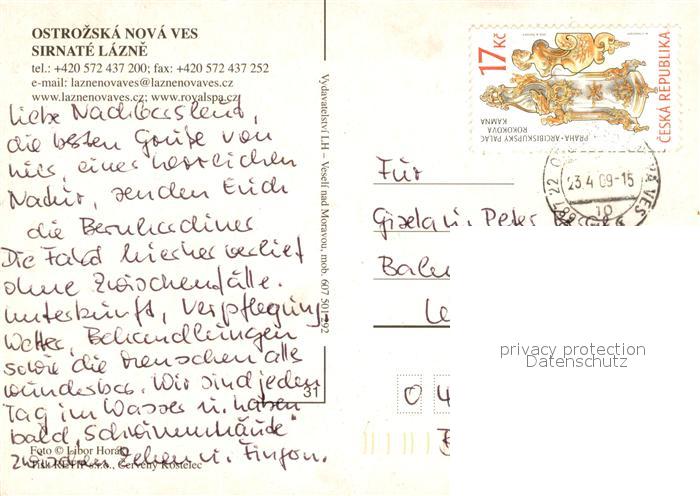 OSTROŽSKÁ NOVÁ VES
SIRNATÉ LÁZNĚ
tel.: +420 572 437 200; fax: +420 572 437 252
e-mail: laznenovaves@laznenovaves.cz
www.laznenovaves.cz; www.royalspa.cz
Liebe Nachbarsleut,
die besten Grüße von
hier, einer herrlichen
Natur, senden Euch
die Bernhardiner
Die Fahrt hierher verlief
ohne Zwischenfälle.
Unterkunft, Verpflegung,
Wetter, Behandlungen
sowie die Menschen alle
wunderbar. Wir sind jeden
Tag im Wasser u. haben
bald "Schwimmhäute"
zwischen Zehen u. Fingern.
Foto © Libor Horák
Tisk RETIP s.r.o., Červený Kostelec
Vydavatelství LH – Veselí nad Moravou, mob. 607 501 292
31
17 Kč
ČESKÁ REPUBLIKA
PRAHA-ARCIBISKUPSKÝ PALÁC
ROKOKOVÁ
KAMNA
687 22
VES
23.4.09-15
10
Für
Gisela u. Peter
0 4
privacy protection
Datenschutz